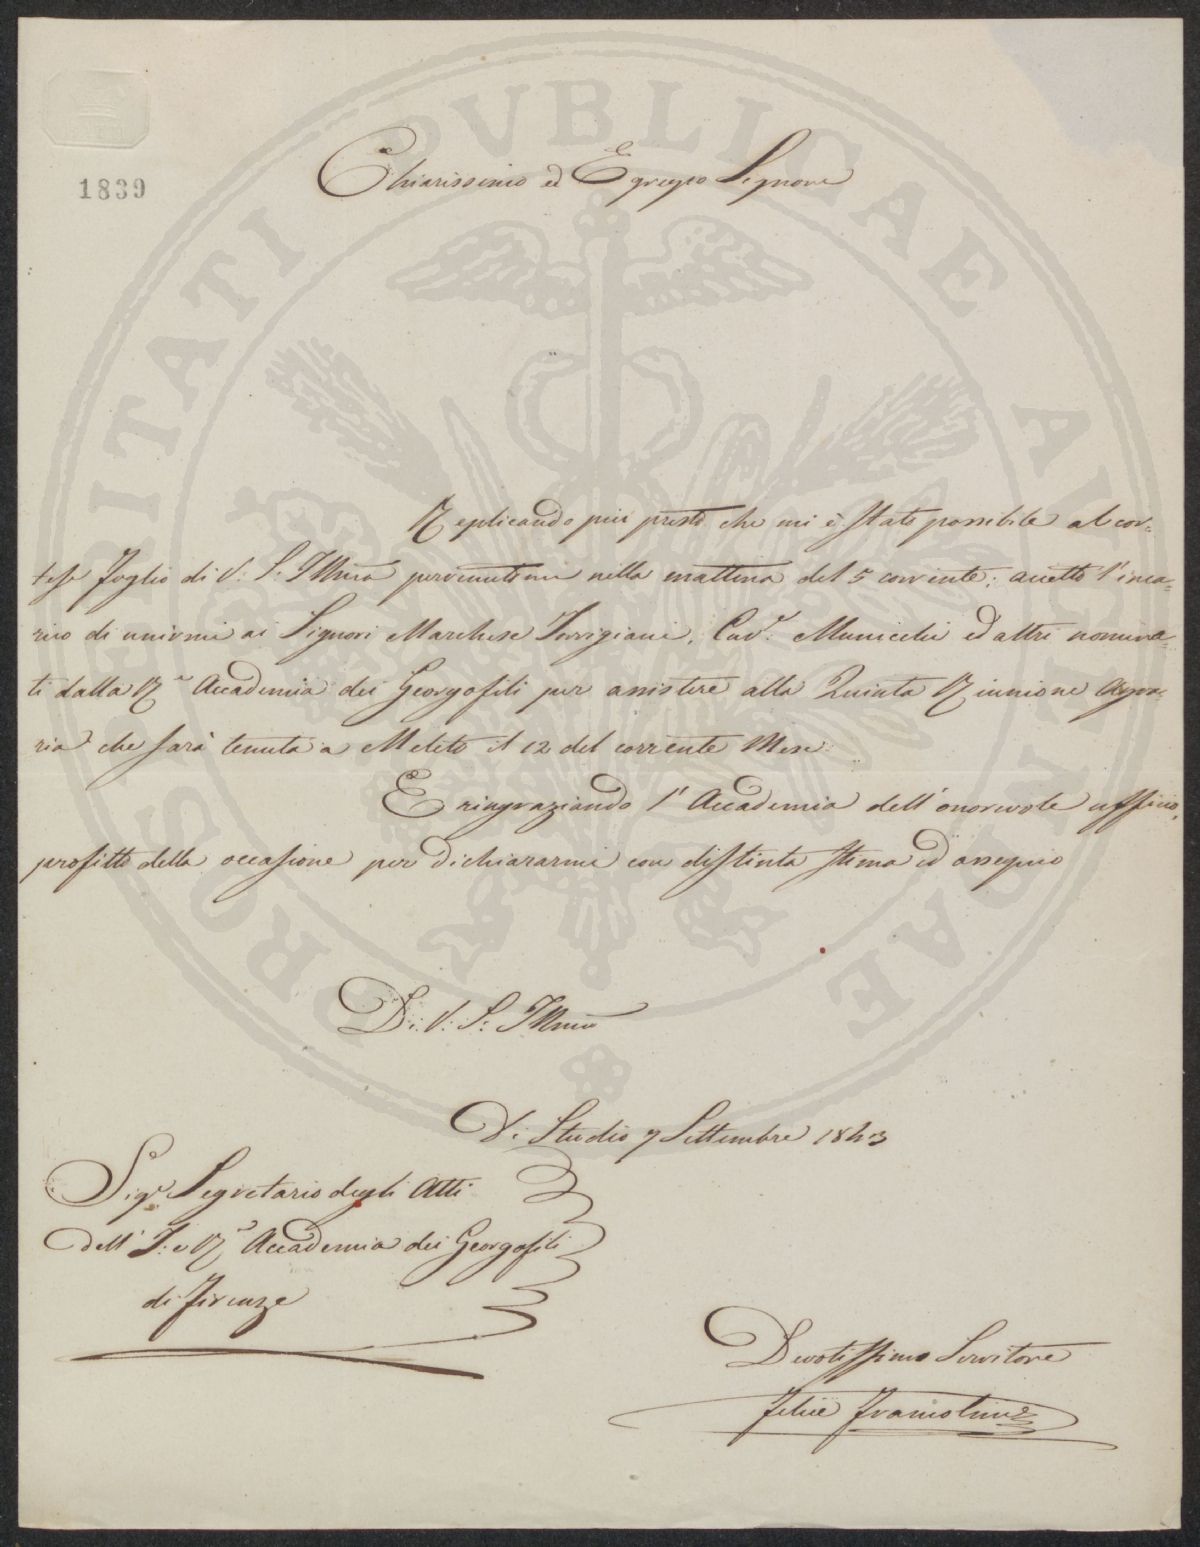 PROSPERITATI PVBLICAE AVGENDAE
1839
Chiarissimo ed Egregio Signore
Replicando più presto che mi è stato possibile al cor=
tese foglio di V: S: Illma pervenutomi nella mattina del 5 corrente; accetto l'inca=
rico di unirmi ai Signori Marchese Torrigiani, Cav.r ed altri nomina=
ti dalla R.e Accademia dei Georgofili per assistere alla Quinta Riunione Agra=
ria che sarà tenuta a Meleto il 12 del corrente Mese.
E ringraziando l'Accademia dell'onorevole ufficio,
profitto della occasione per dichiararmi con distinta stima ed ossequio
Di V: S: Illma
Di Studio 7 Settembre 1843
Sig.r Segretario degli Atti
dell'I: e R.e Accademia dei Georgofili
di Firenze
Devotissimo Servitore
Felice Francolini